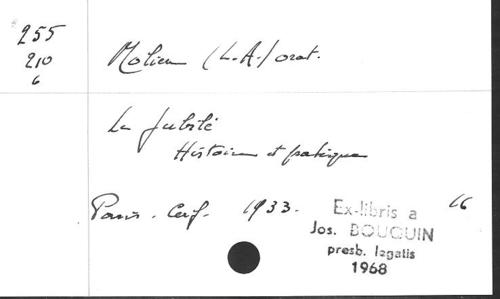 255
210
6
Molien (L.-A.) orat.
Le Jubilé
Histoire et pratique
Paris. Cerf. 1933. 16
Ex-libris a
Jos. BOUQUIN
presb. legatis
1968